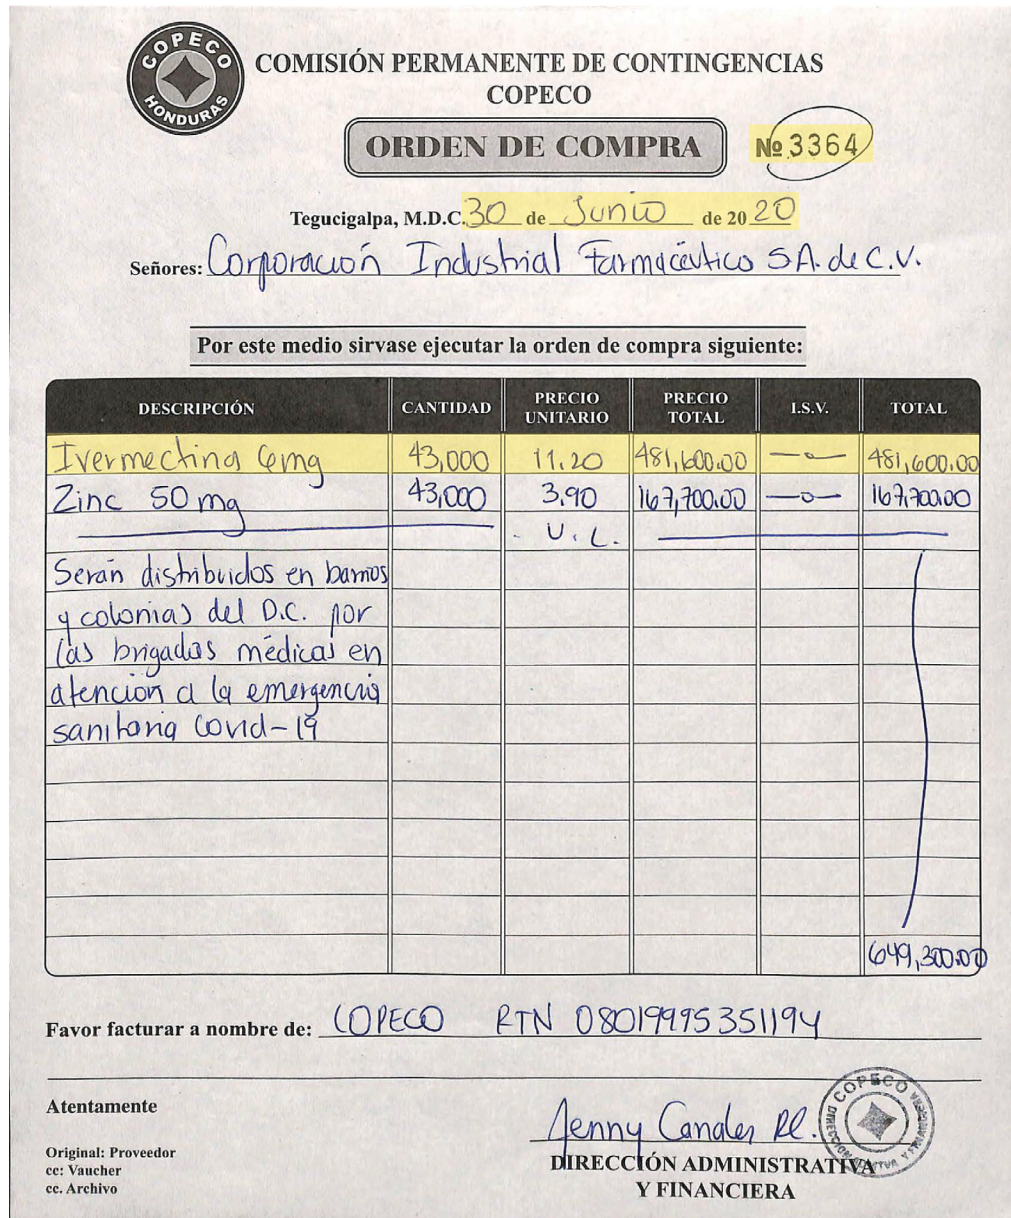 COPECO
HONDURAS
COMISIÓN PERMANENTE DE CONTINGENCIAS
COPECO
ORDEN DE COMPRA
Nº 3364
Tegucigalpa, M.D.C. 30 de Junio de 2020
Señores: Corporación Industrial Farmacéutico S.A. de C.V.
Por este medio sirvase ejecutar la orden de compra siguiente:
DESCRIPCIÓN CANTIDAD PRECIO UNITARIO PRECIO TOTAL I.S.V. TOTAL
Ivermectina 6mg 43,000 11.20 481,600.00 —o— 481,600.00
Zinc 50 mg 43,000 3.90 167,700.00 —o— 167,700.00
U.L.
Serán distribuidos en barrios
y colonias del D.C. por
las brigadas médicas en
atención a la emergencia
sanitaria Covid-19
649,300.00
Favor facturar a nombre de: COPECO RTN 08019995351194
Atentamente
Jenny Canales Rl.
COPECO
Original: Proveedor
cc: Vaucher
cc. Archivo
DIRECCIÓN ADMINISTRATIVA
Y FINANCIERA